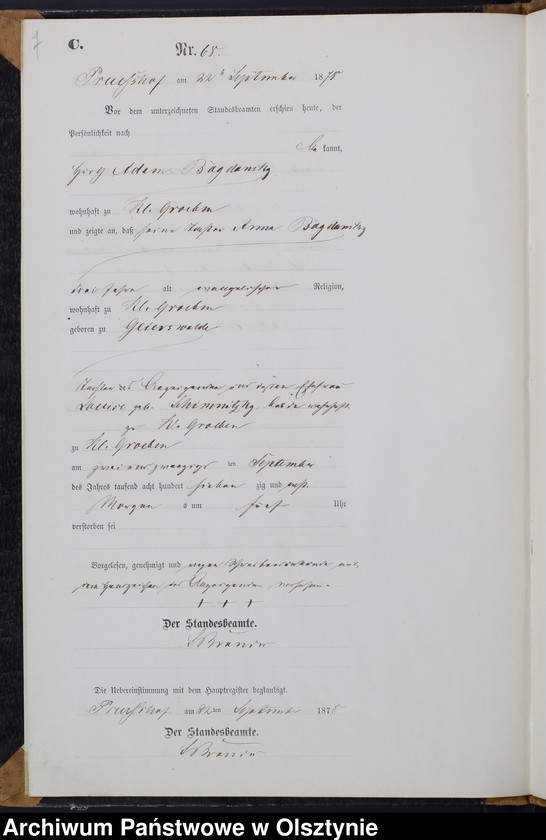 7
C.
Nr. 68.
am 22ten September 1878
Vor dem unterzeichneten Standesbeamten erschien heute, der
Persönlichkeit nach
kannt,
Wirth Adam Bogdanitzky
wohnhaft zu Kl. Groeben
und zeigte an, daß seine Tochter Anna Bogdanitzky
drei Jahre alt evangelischer Religion,
wohnhaft zu Kl. Groeben
geboren zu Geierswalde
Tochter des Anzeigenden und dessen Ehefrau
Louise geb. Schimnitzky beide wohnhaft
zu Kl. Groeben
zu Kl. Groeben
am zwei und zwanzigsten September
des Jahres tausend acht hundert sieben zig und acht
Morgens um fünf Uhr
verstorben sei
Vorgelesen, genehmigt und wegen Schreibensunkunde mit
dem Handzeichen des Anzeigenden versehen.
+ + +
Der Standesbeamte.
Die Uebereinstimmung mit dem Hauptregister beglaubigt.
am 22ten September 1878
Der Standesbeamte.
Archiwum Państwowe w Olsztynie